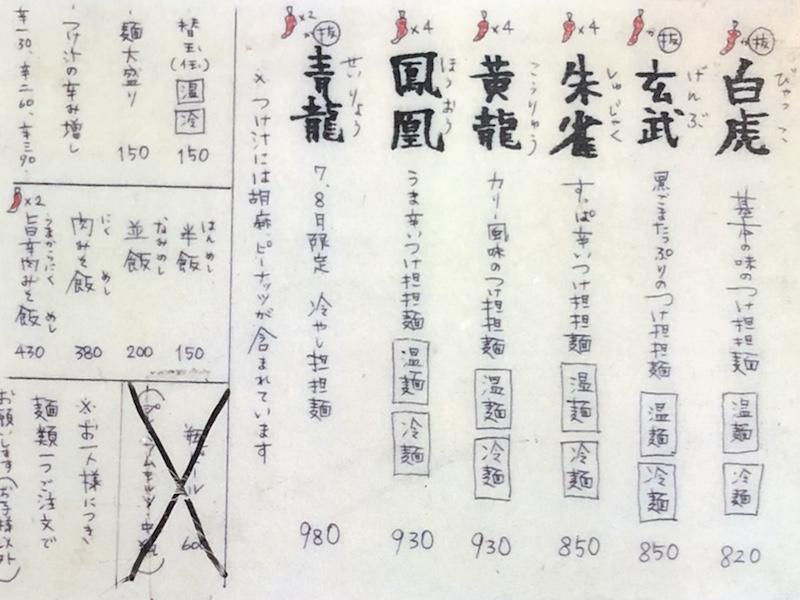 抜
白虎
びゃっこ
基本の味のつけ担担麺
温麺
冷麺
820
抜
玄武
げんぶ
黒ごまたっぷりのつけ担担麺
温麺
冷麺
850
×4
朱雀
しゅじゃく
すっぱ辛いつけ担担麺
温麺
冷麺
850
×4
黄龍
こうりゅう
カリー風味のつけ担担麺
温麺
冷麺
930
×4
鳳凰
ほうおう
うま辛いつけ担担麺
温麺
冷麺
930
×2
抜
青龍
せいりょう
7、8月限定 冷やし担担麺
980
※つけ汁には胡麻、ピーナッツが含まれています
替玉(伝)
温
冷
150
・麺大盛り
150
・つけ汁の辛み増し
辛一30、辛二60、辛三90
半飯
はんめし
150
並飯
なみめし
200
肉みそ飯
にくめし
380
×2
旨辛肉みそ飯
うまからにくめし
430
600
※お一人様につき
麺類一つご注文で
お願いします(お子様以外)